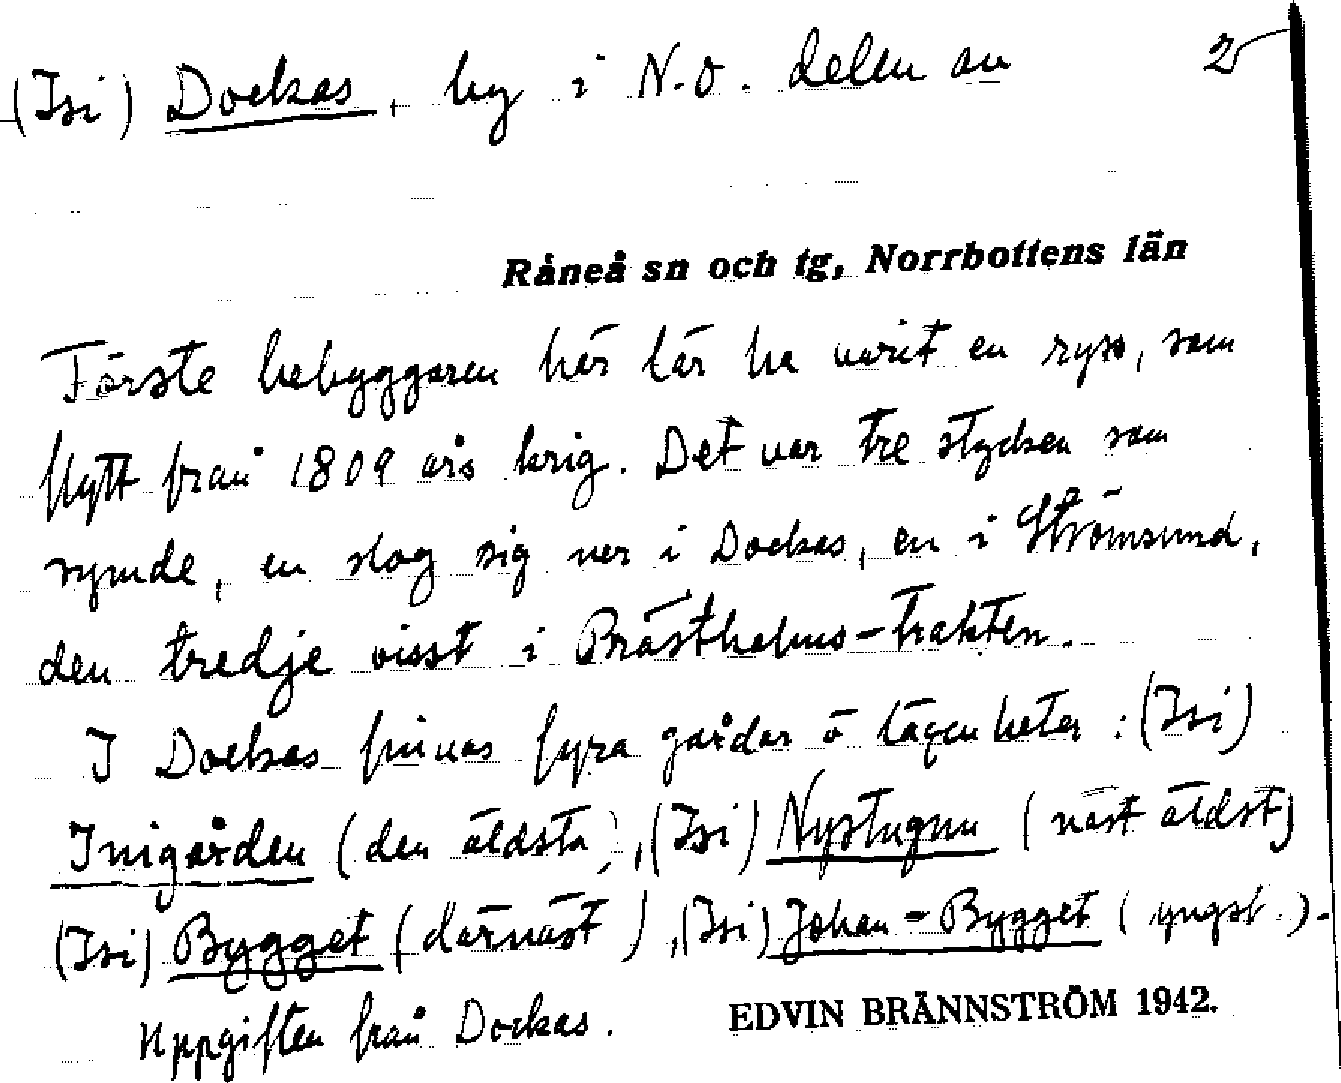 (Isi) Dockas, by i N.O. delen av 2
Råneå sn och tg, Norrbottens län
Förste bebyggaren här lär ha varit en ryss, som
flytt från 1809 års krig. Det var tre stycken som
rymde, en slog sig ner i Dockas, en i Strömsund,
den tredje visst i Prästholms-trakten.
I Dockas finnas fyra gårdar o lägenheter: (Isi)
Inigården (den äldsta), (Isi) Nystugun (näst äldst)
(Isi) Bygget (därnäst), (Isi) Johan-Bygget (yngst).
Uppgiften från Dockas. EDVIN BRÄNNSTRÖM 1942.